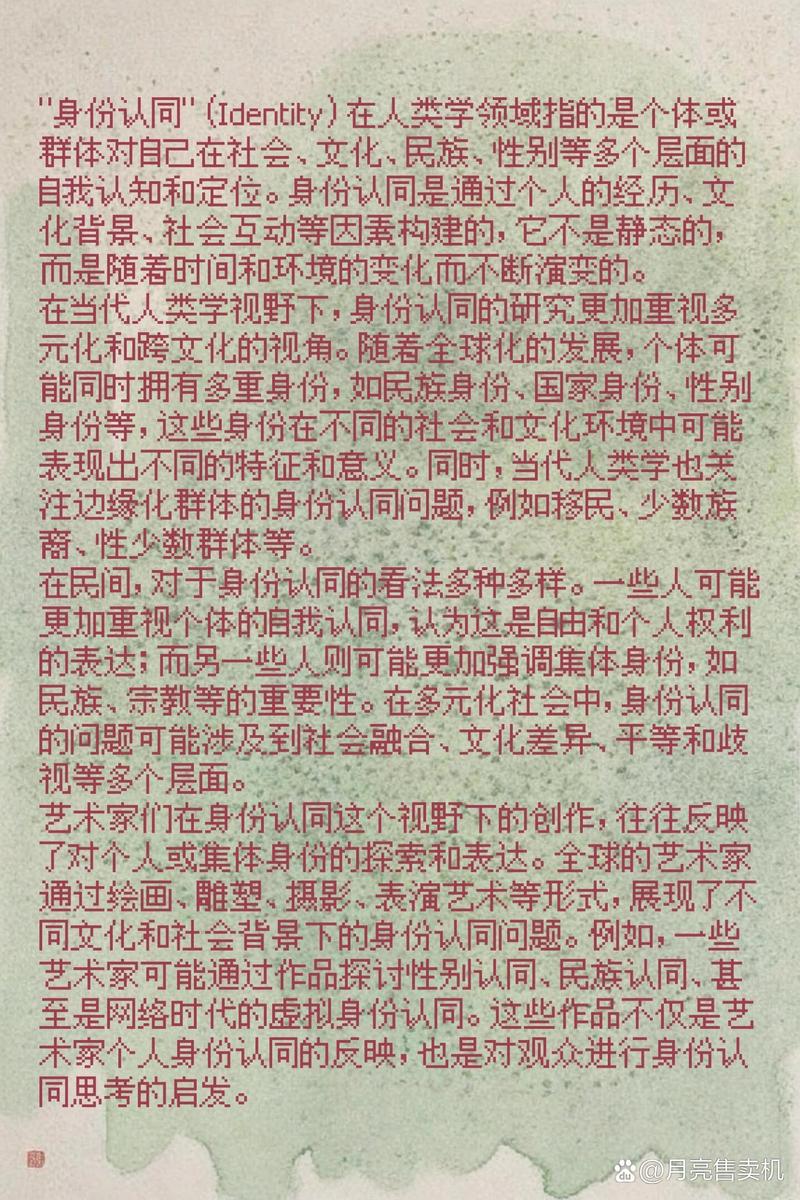 "身份认同"(Identity)在人类学领域指的是个体或
群体对自己在社会、文化、民族、性别等多个层面的
自我认知和定位。身份认同是通过个人的经历、文
化背景、社会互动等因素构建的,它不是静态的,
而是随着时间和环境的变化而不断演变的。
在当代人类学视野下,身份认同的研究更加重视多
元化和跨文化的视角。随着全球化的发展,个体可
能同时拥有多重身份,如民族身份、国家身份、性别
身份等,这些身份在不同的社会和文化环境中可能
表现出不同的特征和意义。同时,当代人类学也关
注边缘化群体的身份认同问题,例如移民、少数族
裔、性少数群体等。
在民间,对于身份认同的看法多种多样。一些人可能
更加重视个体的自我认同,认为这是自由和个人权利
的表达;而另一些人则可能更加强调集体身份,如
民族、宗教等的重要性。在多元化社会中,身份认同
的问题可能涉及到社会融合、文化差异、平等和歧
视等多个层面。
艺术家们在身份认同这个视野下的创作,往往反映
了对个人或集体身份的探索和表达。全球的艺术家
通过绘画、雕塑、摄影、表演艺术等形式,展现了不
同文化和社会背景下的身份认同问题。例如,一些
艺术家可能通过作品探讨性别认同、民族认同、甚
至是网络时代的虚拟身份认同。这些作品不仅是艺
术家个人身份认同的反映,也是对观众进行身份认
同思考的启发。
@月亮售卖机